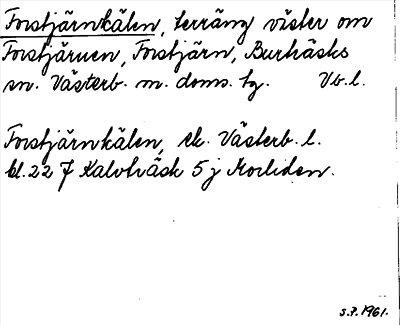 Forstjärnkälen, terräng väster om
Forstjärnen, Forstjärn, Burträsks
sn. Västerb. m. doms. tg. Vb. l.
Forstjärnkälen, ek. Västerb. l.
bl. 22 J Kalvträsk 5 j Morliden.
s. 7. 1961.